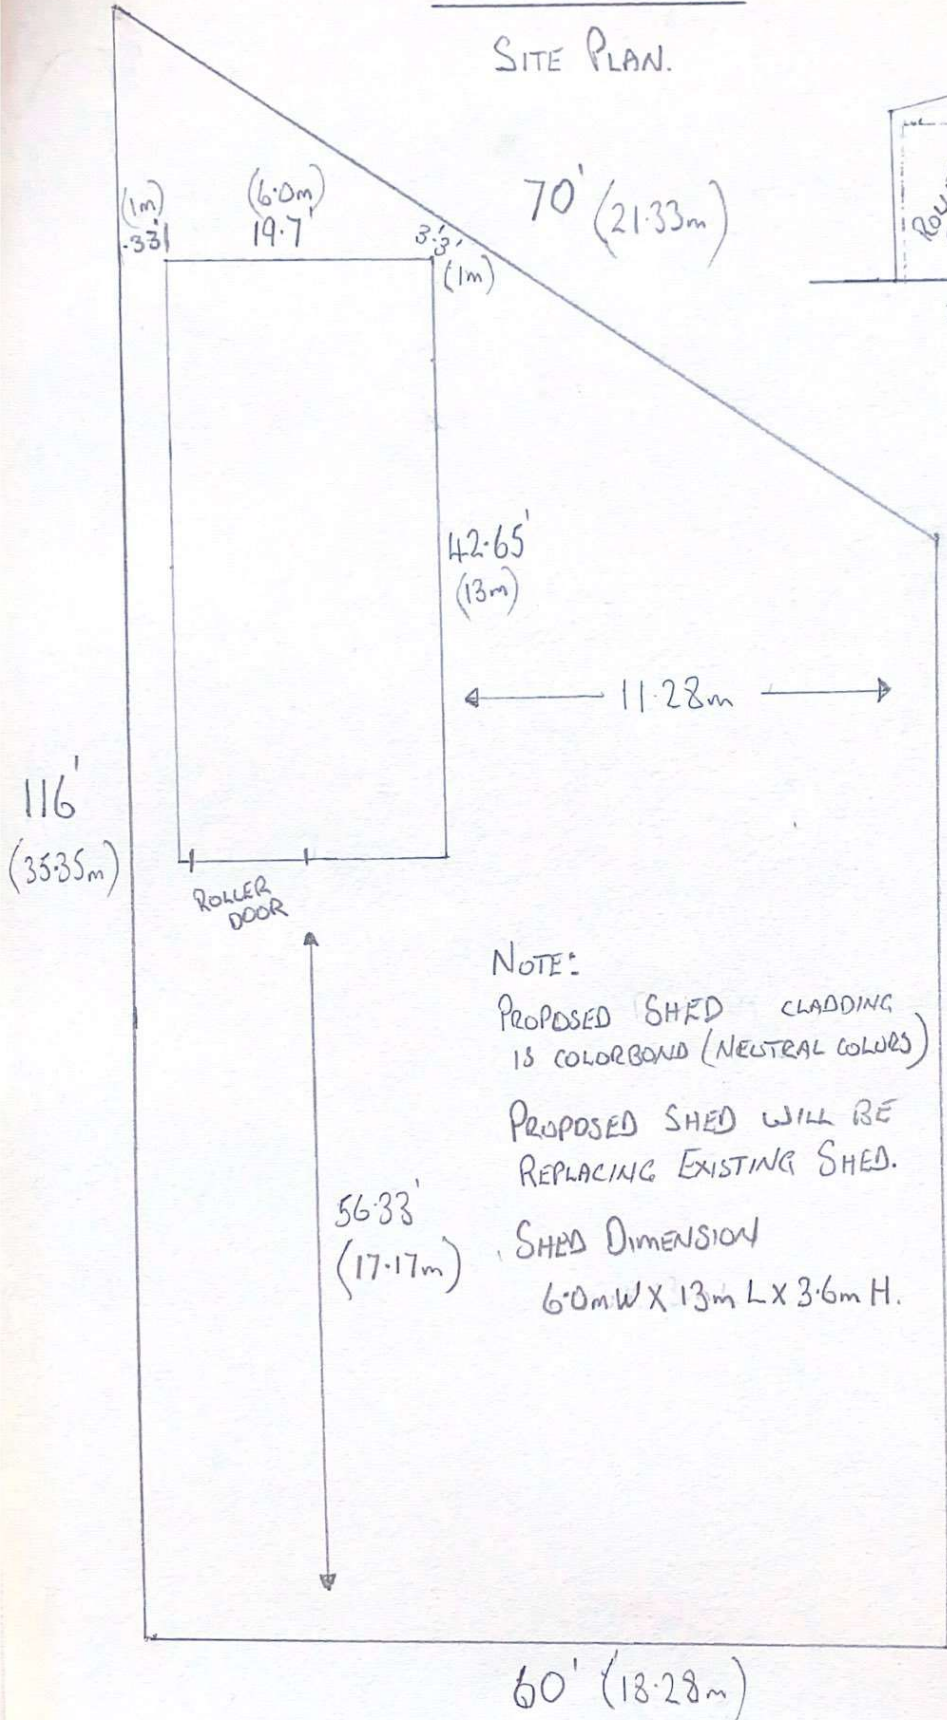 SITE PLAN.
70' (21.33m)
(1m)
.33'
(6.0m)
19.7'
3.3'
(1m)
42.65'
(13m)
11.28m
116'
(35.35m)
ROLLER
DOOR
NOTE:
PROPOSED SHED CLADDING
IS COLORBOND (NEUTRAL COLURS)
PROPOSED SHED WILL BE
REPLACING EXISTING SHED.
SHED DIMENSION
6.0m W X 13m L X 3.6m H.
56.33'
(17.17m)
60' (18.28m)